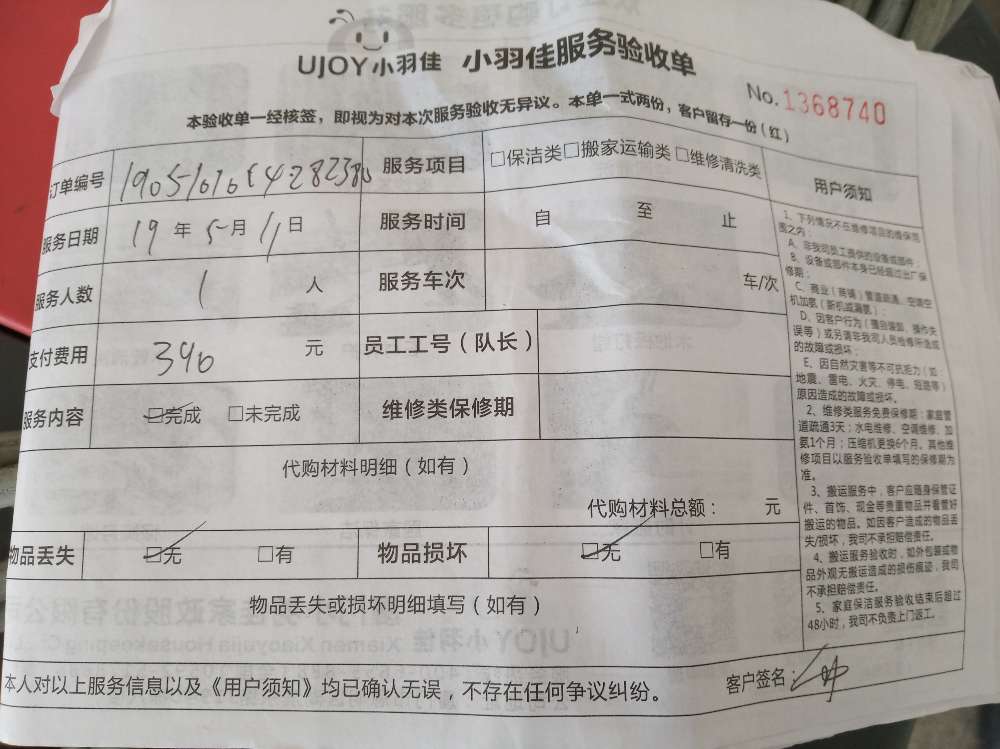 UJOY小羽佳 小羽佳服务验收单
No.1368740
本验收单一经核签，即视为对本次服务验收无异议。本单一式两份，客户留存一份（红）
订单编号 服务项目 □保洁类□搬家运输类□维修清洗类
服务日期 19年5月11日 服务时间 自 至 止
服务人数 1 人 服务车次 车/次
支付费用 390 元 员工工号（队长）
服务内容 □完成 □未完成 维修类保修期
代购材料明细（如有）
代购材料总额： 元
物品丢失 □无 □有 物品损坏 □无 □有
物品丢失或损坏明细填写（如有）
本人对以上服务信息以及《用户须知》均已确认无误，不存在任何争议纠纷。
客户签名：
用户须知
1、下列情况不在维修项目的维保范
围之内：
A、非我司员工提供的设备或部件；
B、设备或部件本身已经超过出厂保
修期；
C、商业（商铺）管道疏通、空调空
机加氨（新机或漏氨）；
D、因客户行为（擅自装卸、操作失
误等）或另请非我司人员检修所造成
的故障或损坏；
E、因自然灾害等不可抗拒力（如：
地震、雷电、火灾、停电、短路等）
原因造成的故障或损坏。
2、维修类服务免费保修期：家庭管
道疏通3天；水电维修、空调维修、加
氨1个月；压缩机更换6个月。其他维
修项目以服务验收单填写的保修期为
准。
3、搬运服务中，客户应随身保管证
件、首饰、现金等贵重物品并看管好
搬运的物品。如因客户造成的物品丢
失/损坏，我司不承担赔偿责任。
4、搬运服务验收时，如外包装或物
品外观无搬运造成的损伤痕迹，我司
不承担赔偿责任。
5、家庭保洁服务验收结束后超过
48小时，我司不负责上门返工。